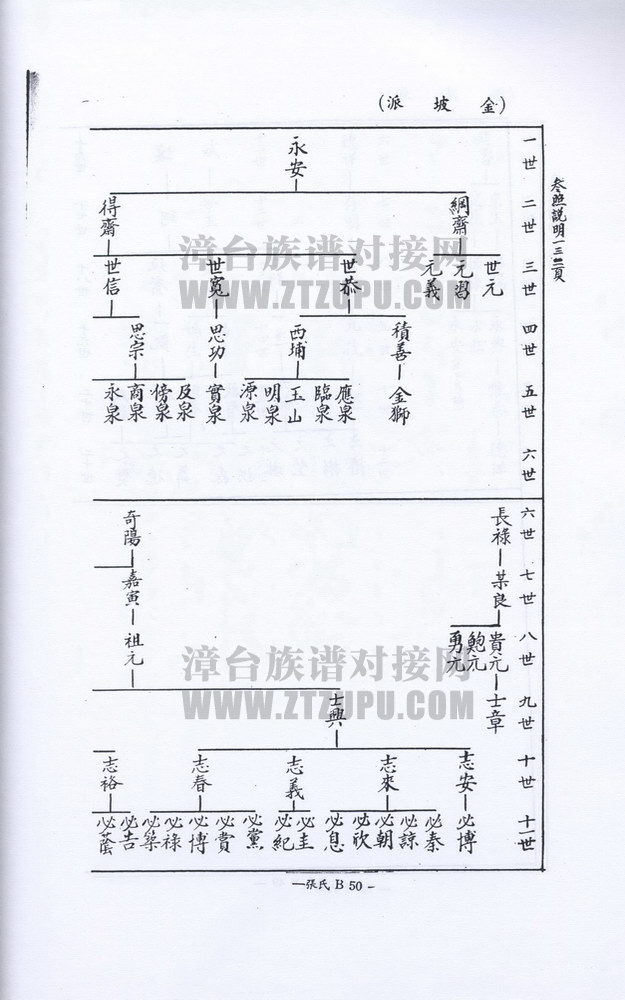 (金坡派)
參照説明一三二頁
一世 二世 三世 四世 五世 六世
永安
綱齋 得齋
世元 元湯 元義 世恭 世寬 世信
積善 西埔 思功 思宗
金獅 應泉 臨泉 玉山 明泉 源泉 實泉 及泉 傍泉 商泉 永泉
六世 七世 八世 九世 十世 十一世
長祿 奇陽
某良 嘉寅
貴元 鮑元 勇元 祖元
士章 士興
志安 志來 志義 志春 志裕
必博 必秦 必諒 必朝 必欣 必息 必圭 必紀 必黨 必賞 必博 必祿 必築 必吉 必蔭
—張氏 B 50 -
漳台族谱对接网
WWW.ZTZUPU.COM
漳台族谱对接网
WWW.ZTZUPU.COM